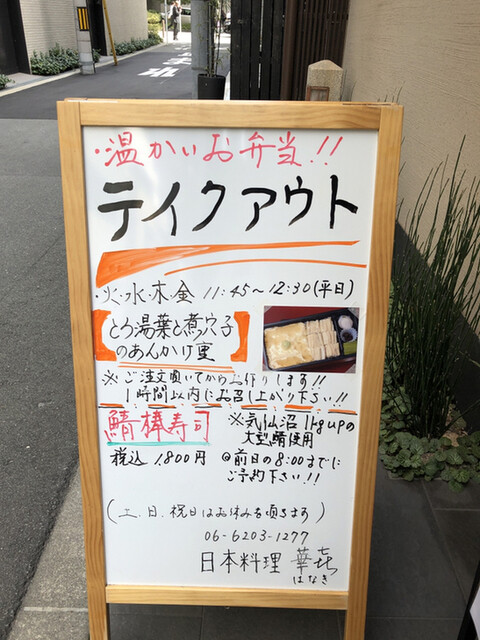 ・温かいお弁当!!
テイクアウト
・火・水・木・金 11:45～12:30(平日)
【とろ湯葉と煮穴子
のあんかけ重】
※ご注文頂いてからお作りします!!
1時間以内にお召し上がり下さい!!
鯖棒寿司
※気仙沼 1kgupの
大型鯖使用
税込 1,800円
@前日の8:00までに
ご予約下さい!!
(土、日、祝日はお休みを頂きます)
06-6203-1277
日本料理 華㐂
はなき